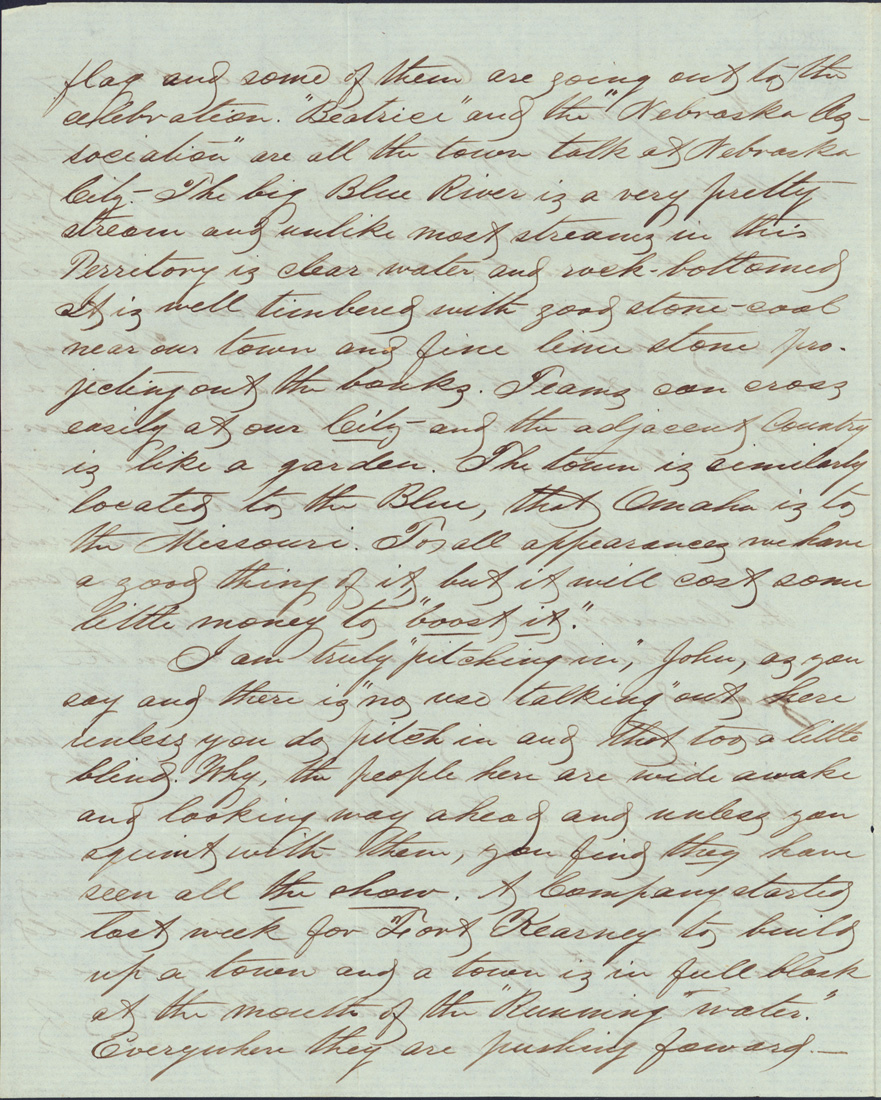 flag and some of them are going out to the
celebration. "Beatrice" and the "Nebraska As-
sociation" are all the town talk at Nebraska
City.- The big Blue River is a very pretty
stream and unlike most streams in this
Territory is clear water and rock-bottomed
It is well timbered with good stone-coal
near our town and fine lime stone pro-
jecting out the banks. Teams can cross
easily at our City- and the adjacent Country
is like a garden. The town is similarly
located to the Blue, that Omaha is to
the Missouri. To all appearances we have
a good thing of it, but it will cost some
little money to "boost it."
I am truly "pitching in", John, as you
say and there is "no use talking" out here
unless you do pitch in and that too a little
blind. Why, the people here are wide awake
and looking way ahead and unless you
squint with them, you find they have
seen all the show. A Company started
last week for Fort Kearney to build
up a town and a town is in full blast
at the mouth of the "Running water."
Everywhere they are pushing foward.-